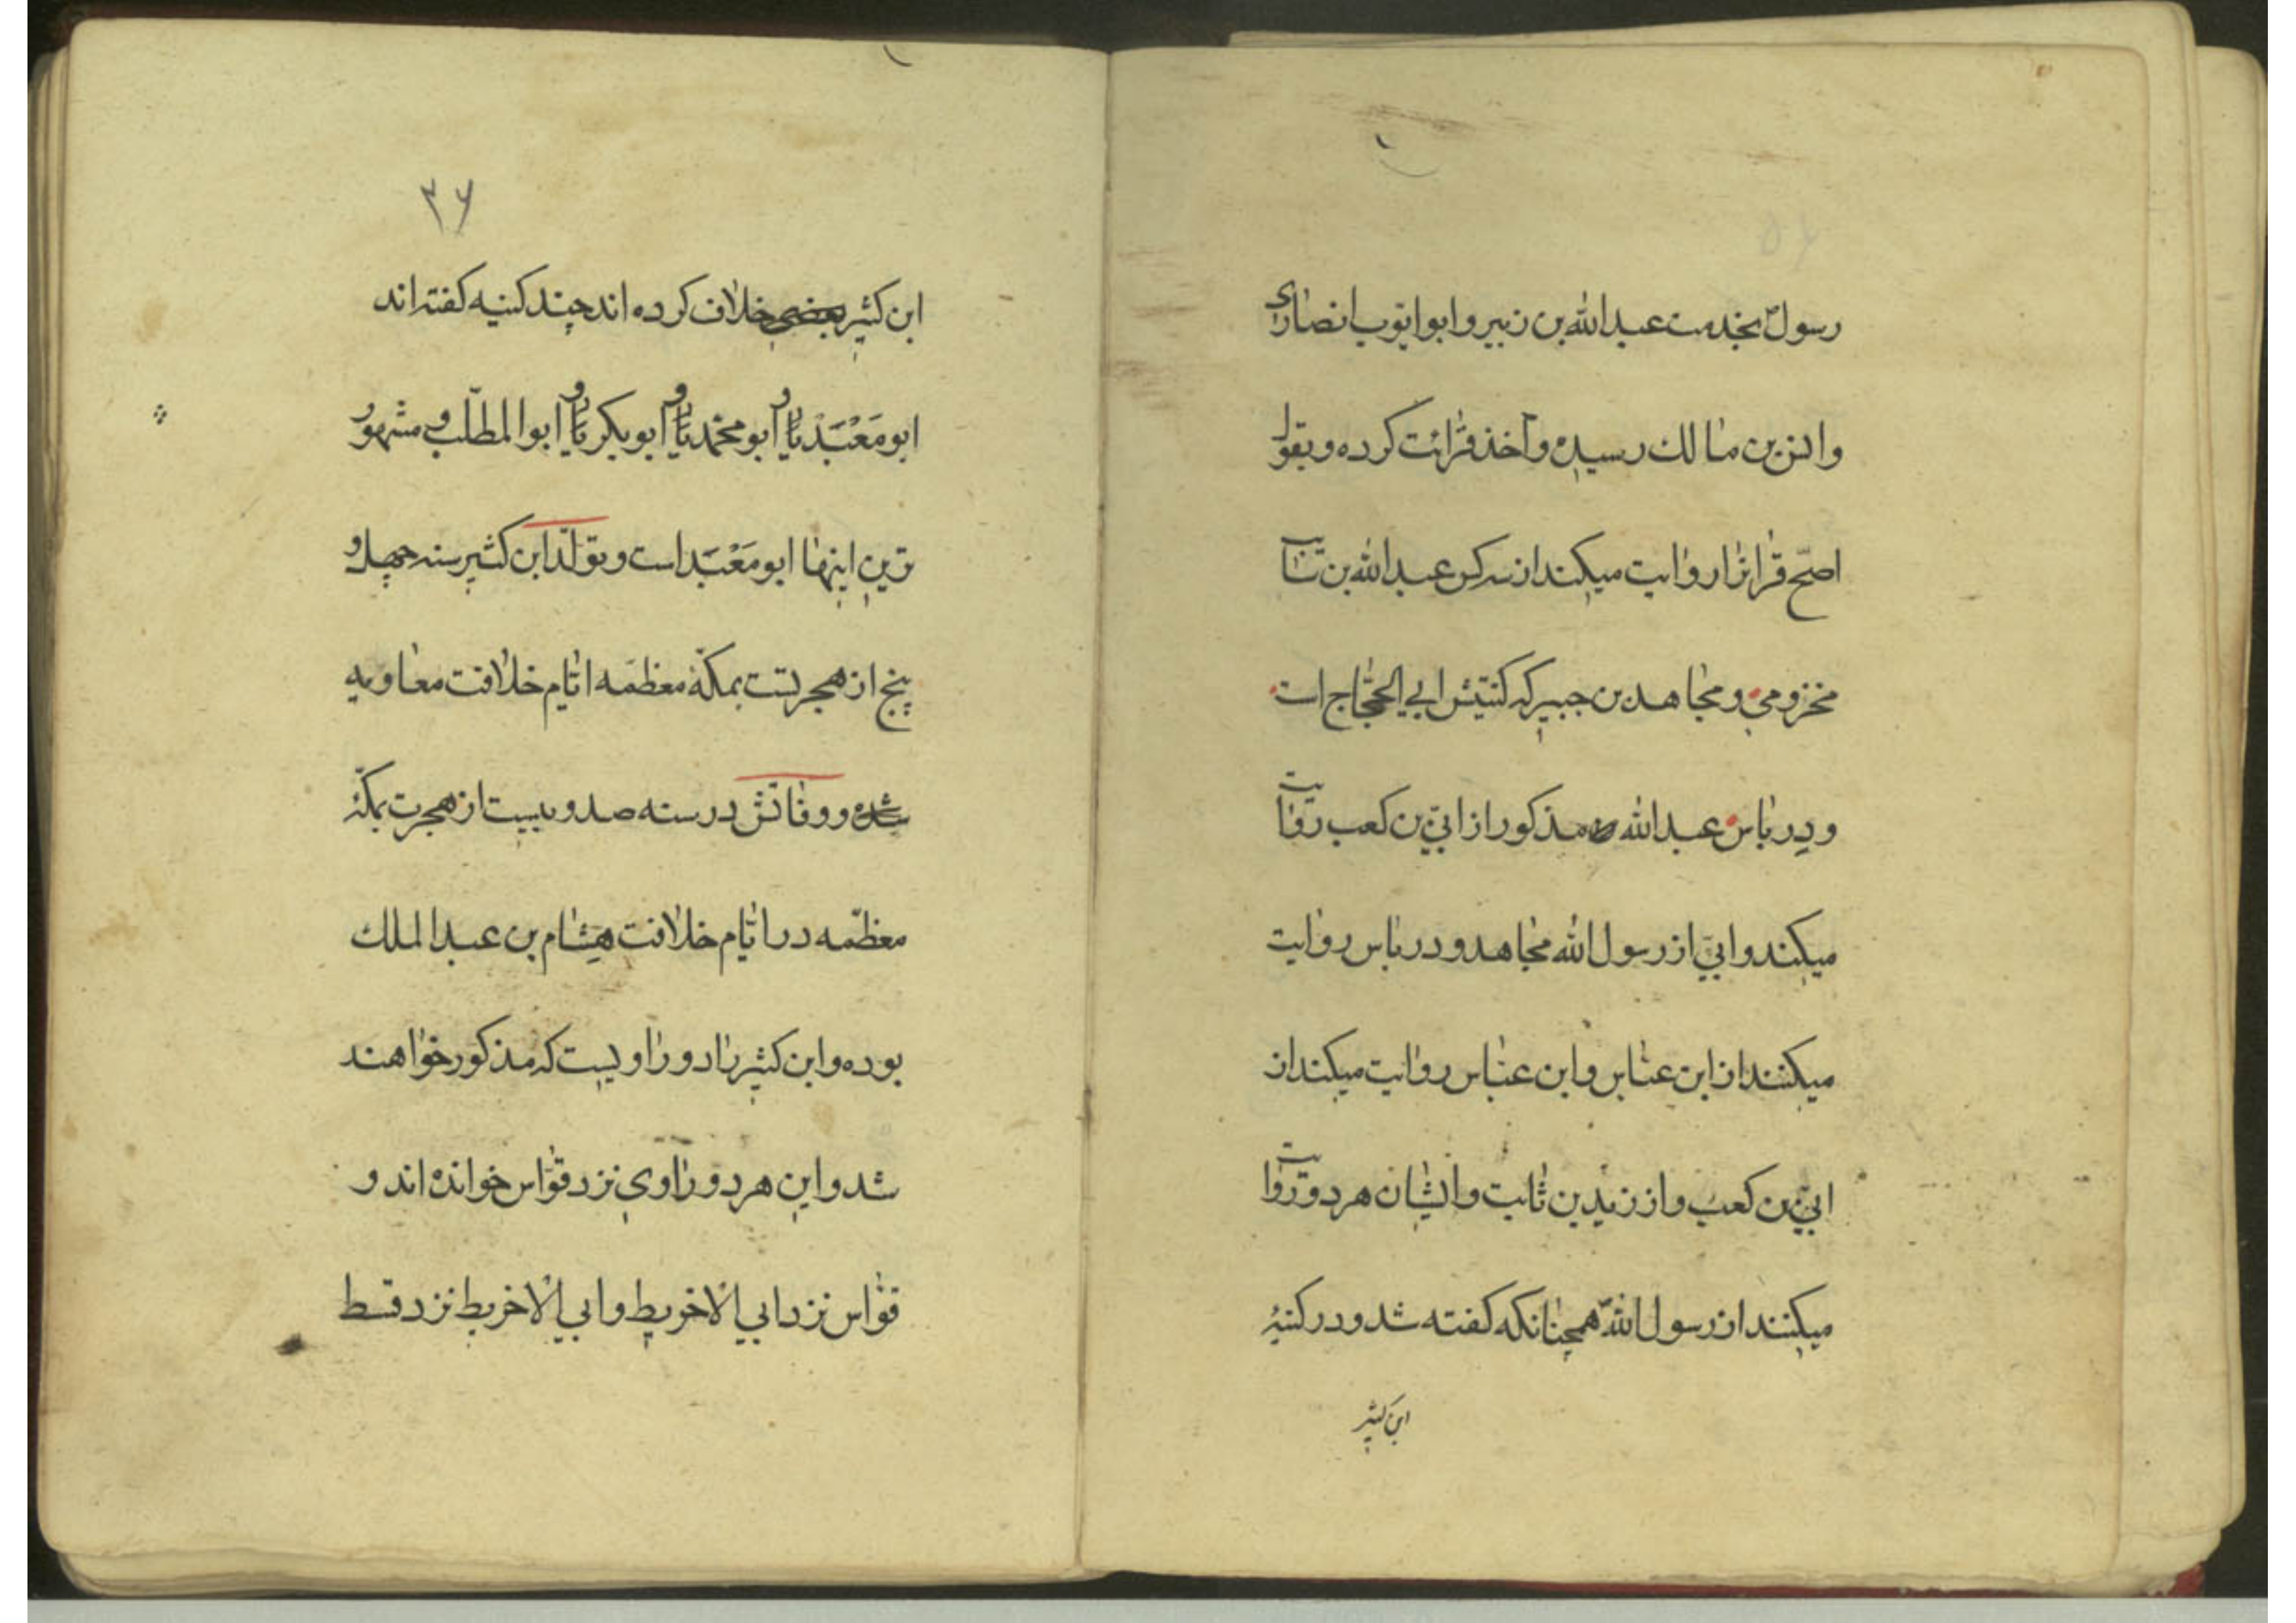 رسول بخدمت عبدالله بن زبیر و ابو ایّوب انصاری
و انس بن مالک رسیده و اخذ قرائت کرده و بقول
اصحّ قراٰنرا روایت میکند از سه کس عبدالله بن سائب
مخزومی و مجاهد بن جبیر که کنیتش ابی الحجّاج است
و درباس عبدالله مذکور از ابیّ بن کعب روایت
میکند و ابیّ از رسول الله مجاهد و درباس روایت
میکنند از ابن عبّاس و ابن عبّاس روایت میکند از
ابیّ بن کعب و از زید بن ثابت و ایشان هر دو روایت
میکنند از رسول اللّه همچنانکه کفته شد و در کنیۀ
ابن کثیر
۳۶
ابن کثیر خلاف کرده اند چند کنیه کفته اند
ابو مَعْبَدْ و ابو محمّد و ابو بکر و ابو المطلّب و مشهور
ترین اینها ابو مَعْبَد است و تولّد ابن کثیر سنه چهل و
پنج از هجرتست بمکّۀ معظمّه ایّام خلافت معاویه
شده و وفاتش در سنه صد و بیست از هجرت بمکّۀ
معظّمه در ایّام خلافت هشام بن عبدالملک
بوده و ابن کثیر را دو راویست که مذکور خواهند
شد و این هر دو راوی نزد قوّاس خوانده اند و
قوّاس نزد ابی الاخریط و ابی الاخریط نزد قسط